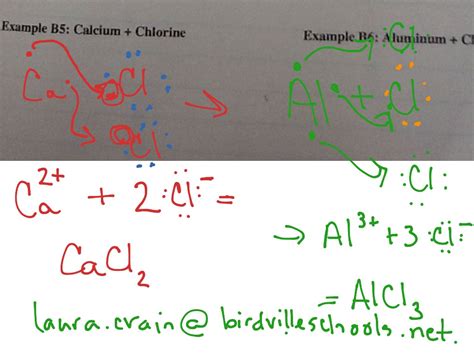 Example B5: Calcium + Chlorine
Example B6: Aluminum + Cl
Ca Cl →
Cl
Al + Cl
Cl
Cl
Ca²⁺ + 2 :Cl:⁻ =
CaCl₂
→ Al³⁺ + 3 :Cl:⁻
= AlCl₃
laura.crain@birdvilleschools.net.